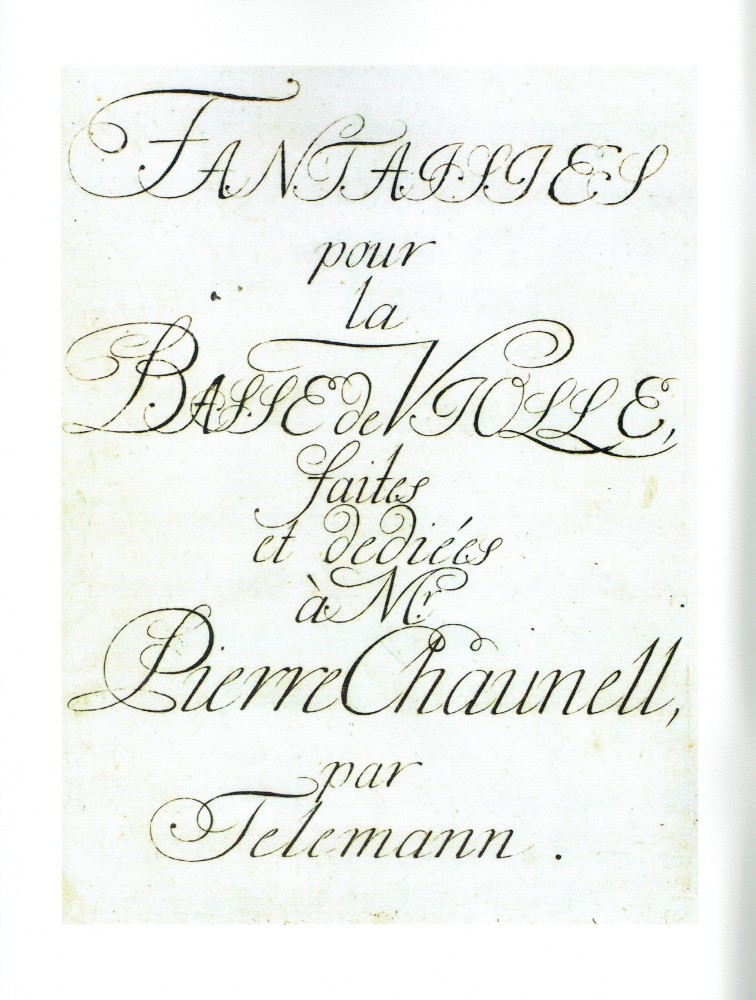 FANTAISIES
pour
la
BASSE de VIOLLE,
faites
et dediées
à Mr.
Pierre Chaunell,
par
Telemann.